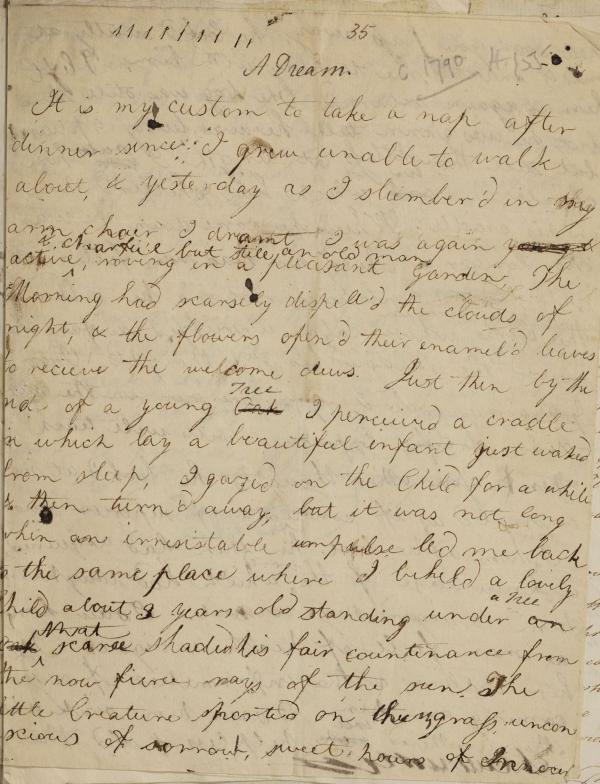 35
c 1790 H 155
A Dream.
It is my custom to take a nap after
dinner since I grew unable to walk
about, & yesterday as I slumber'd in my
arm chair I dramt I was again young &
& chearful but still an old man
active, roving in a pleasant Garden, The
Morning had scarsely dispell'd the clouds of
night, & the flowers open'd their enamel'd leaves
to recieve the welcome dews. Just then by the
Tree
of a young Oak I perceived a cradle
in which lay a beautiful infant just waked
from sleep, I gazed on the Child for a while
& then turn'd away, but it was not long
when an irresistable impulse led me back
the same place where I beheld a lovely
a Tree
Child about 3 years old standing under an
that
oak scarse shaded his fair countinance from
the now fierce rays of the sun, The
little Creature sported on the grass, uncon
scious of sorrow, sweet hours of Innocen